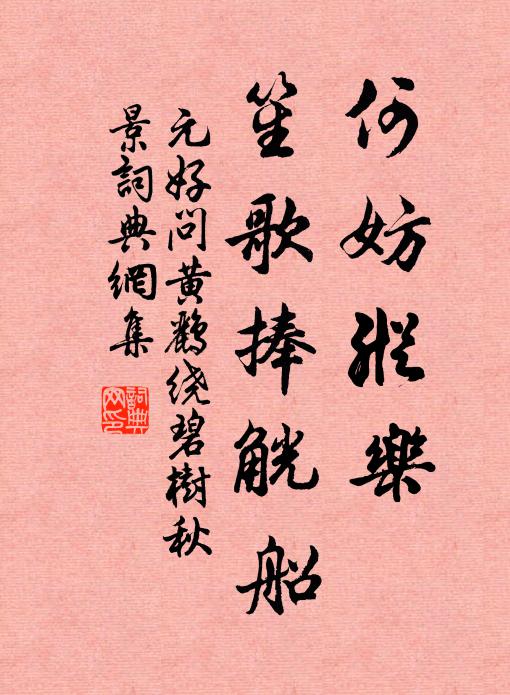 何妨縱樂
笙歌捧觥船
元好问黄鹤绕碧樹秋
景詞典網集
詞典网印